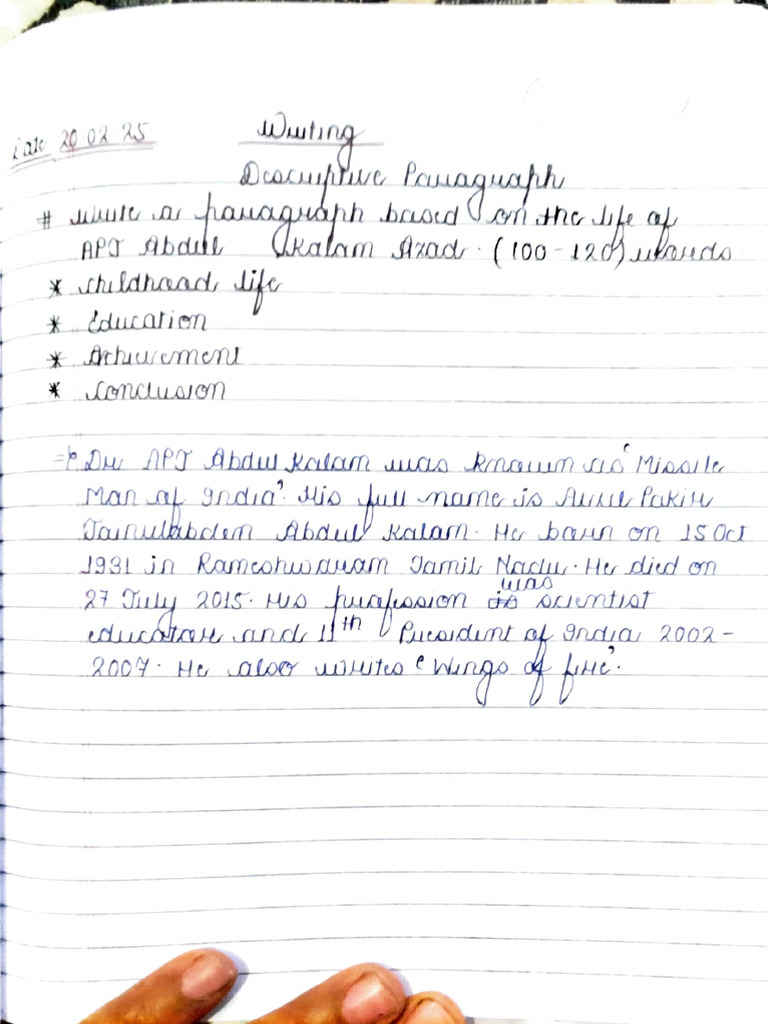 Date 20.02.25
Writing
Descriptive Paragraph
# Write a paragraph based on the life of
APJ Abdul Kalam Azad. (100-120) words
* Childhood life
* Education
* Achievement
* Conclusion
=> Dr APJ Abdul Kalam was known as 'Missile
Man of India'. His full name is Avul Pakir
Jainulabdem Abdul Kalam. He born on 15 Oct
1931 in Rameshwaram Tamil Nadu. He died on
27 July 2015. His profession was scientist
educator and 11th President of India 2002-
2007. He also writes 'Wings of fire'.